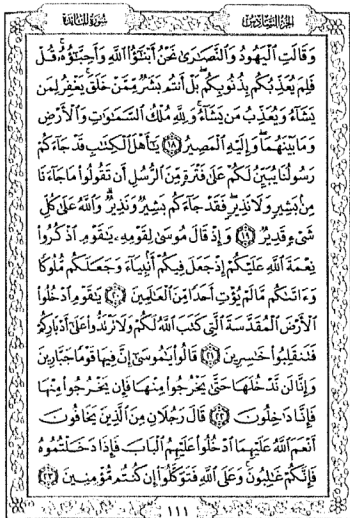 الجزء السادس
سورة المائدة
وَقَالَتِ ٱلْيَهُودُ وَٱلنَّصَٰرَىٰ نَحْنُ أَبْنَٰٓؤُا۟ ٱللَّهِ وَأَحِبَّٰٓؤُهُۥ ۚ قُلْ
فَلِمَ يُعَذِّبُكُم بِذُنُوبِكُم ۖ بَلْ أَنتُم بَشَرٌ مِّمَّنْ خَلَقَ ۚ يَغْفِرُ لِمَن
يَشَآءُ وَيُعَذِّبُ مَن يَشَآءُ ۚ وَلِلَّهِ مُلْكُ ٱلسَّمَٰوَٰتِ وَٱلْأَرْضِ
وَمَا بَيْنَهُمَا ۖ وَإِلَيْهِ ٱلْمَصِيرُ ﴿١٨﴾ يَٰٓأَهْلَ ٱلْكِتَٰبِ قَدْ جَآءَكُمْ
رَسُولُنَا يُبَيِّنُ لَكُمْ عَلَىٰ فَتْرَةٍ مِّنَ ٱلرُّسُلِ أَن تَقُولُوا۟ مَا جَآءَنَا
مِنۢ بَشِيرٍ وَلَا نَذِيرٍ ۖ فَقَدْ جَآءَكُم بَشِيرٌ وَنَذِيرٌ ۗ وَٱللَّهُ عَلَىٰ كُلِّ
شَىْءٍ قَدِيرٌ ﴿١٩﴾ وَإِذْ قَالَ مُوسَىٰ لِقَوْمِهِۦ يَٰقَوْمِ ٱذْكُرُوا۟
نِعْمَةَ ٱللَّهِ عَلَيْكُمْ إِذْ جَعَلَ فِيكُمْ أَنۢبِيَآءَ وَجَعَلَكُم مُّلُوكًا
وَءَاتَىٰكُم مَّا لَمْ يُؤْتِ أَحَدًا مِّنَ ٱلْعَٰلَمِينَ ﴿٢٠﴾ يَٰقَوْمِ ٱدْخُلُوا۟
ٱلْأَرْضَ ٱلْمُقَدَّسَةَ ٱلَّتِى كَتَبَ ٱللَّهُ لَكُمْ وَلَا تَرْتَدُّوا۟ عَلَىٰٓ أَدْبَارِكُمْ
فَتَنقَلِبُوا۟ خَٰسِرِينَ ﴿٢١﴾ قَالُوا۟ يَٰمُوسَىٰٓ إِنَّ فِيهَا قَوْمًا جَبَّارِينَ
وَإِنَّا لَن نَّدْخُلَهَا حَتَّىٰ يَخْرُجُوا۟ مِنْهَا فَإِن يَخْرُجُوا۟ مِنْهَا
فَإِنَّا دَٰخِلُونَ ﴿٢٢﴾ قَالَ رَجُلَانِ مِنَ ٱلَّذِينَ يَخَافُونَ
أَنْعَمَ ٱللَّهُ عَلَيْهِمَا ٱدْخُلُوا۟ عَلَيْهِمُ ٱلْبَابَ فَإِذَا دَخَلْتُمُوهُ
فَإِنَّكُمْ غَٰلِبُونَ ۚ وَعَلَى ٱللَّهِ فَتَوَكَّلُوٓا۟ إِن كُنتُم مُّؤْمِنِينَ ﴿٢٣﴾
١١١